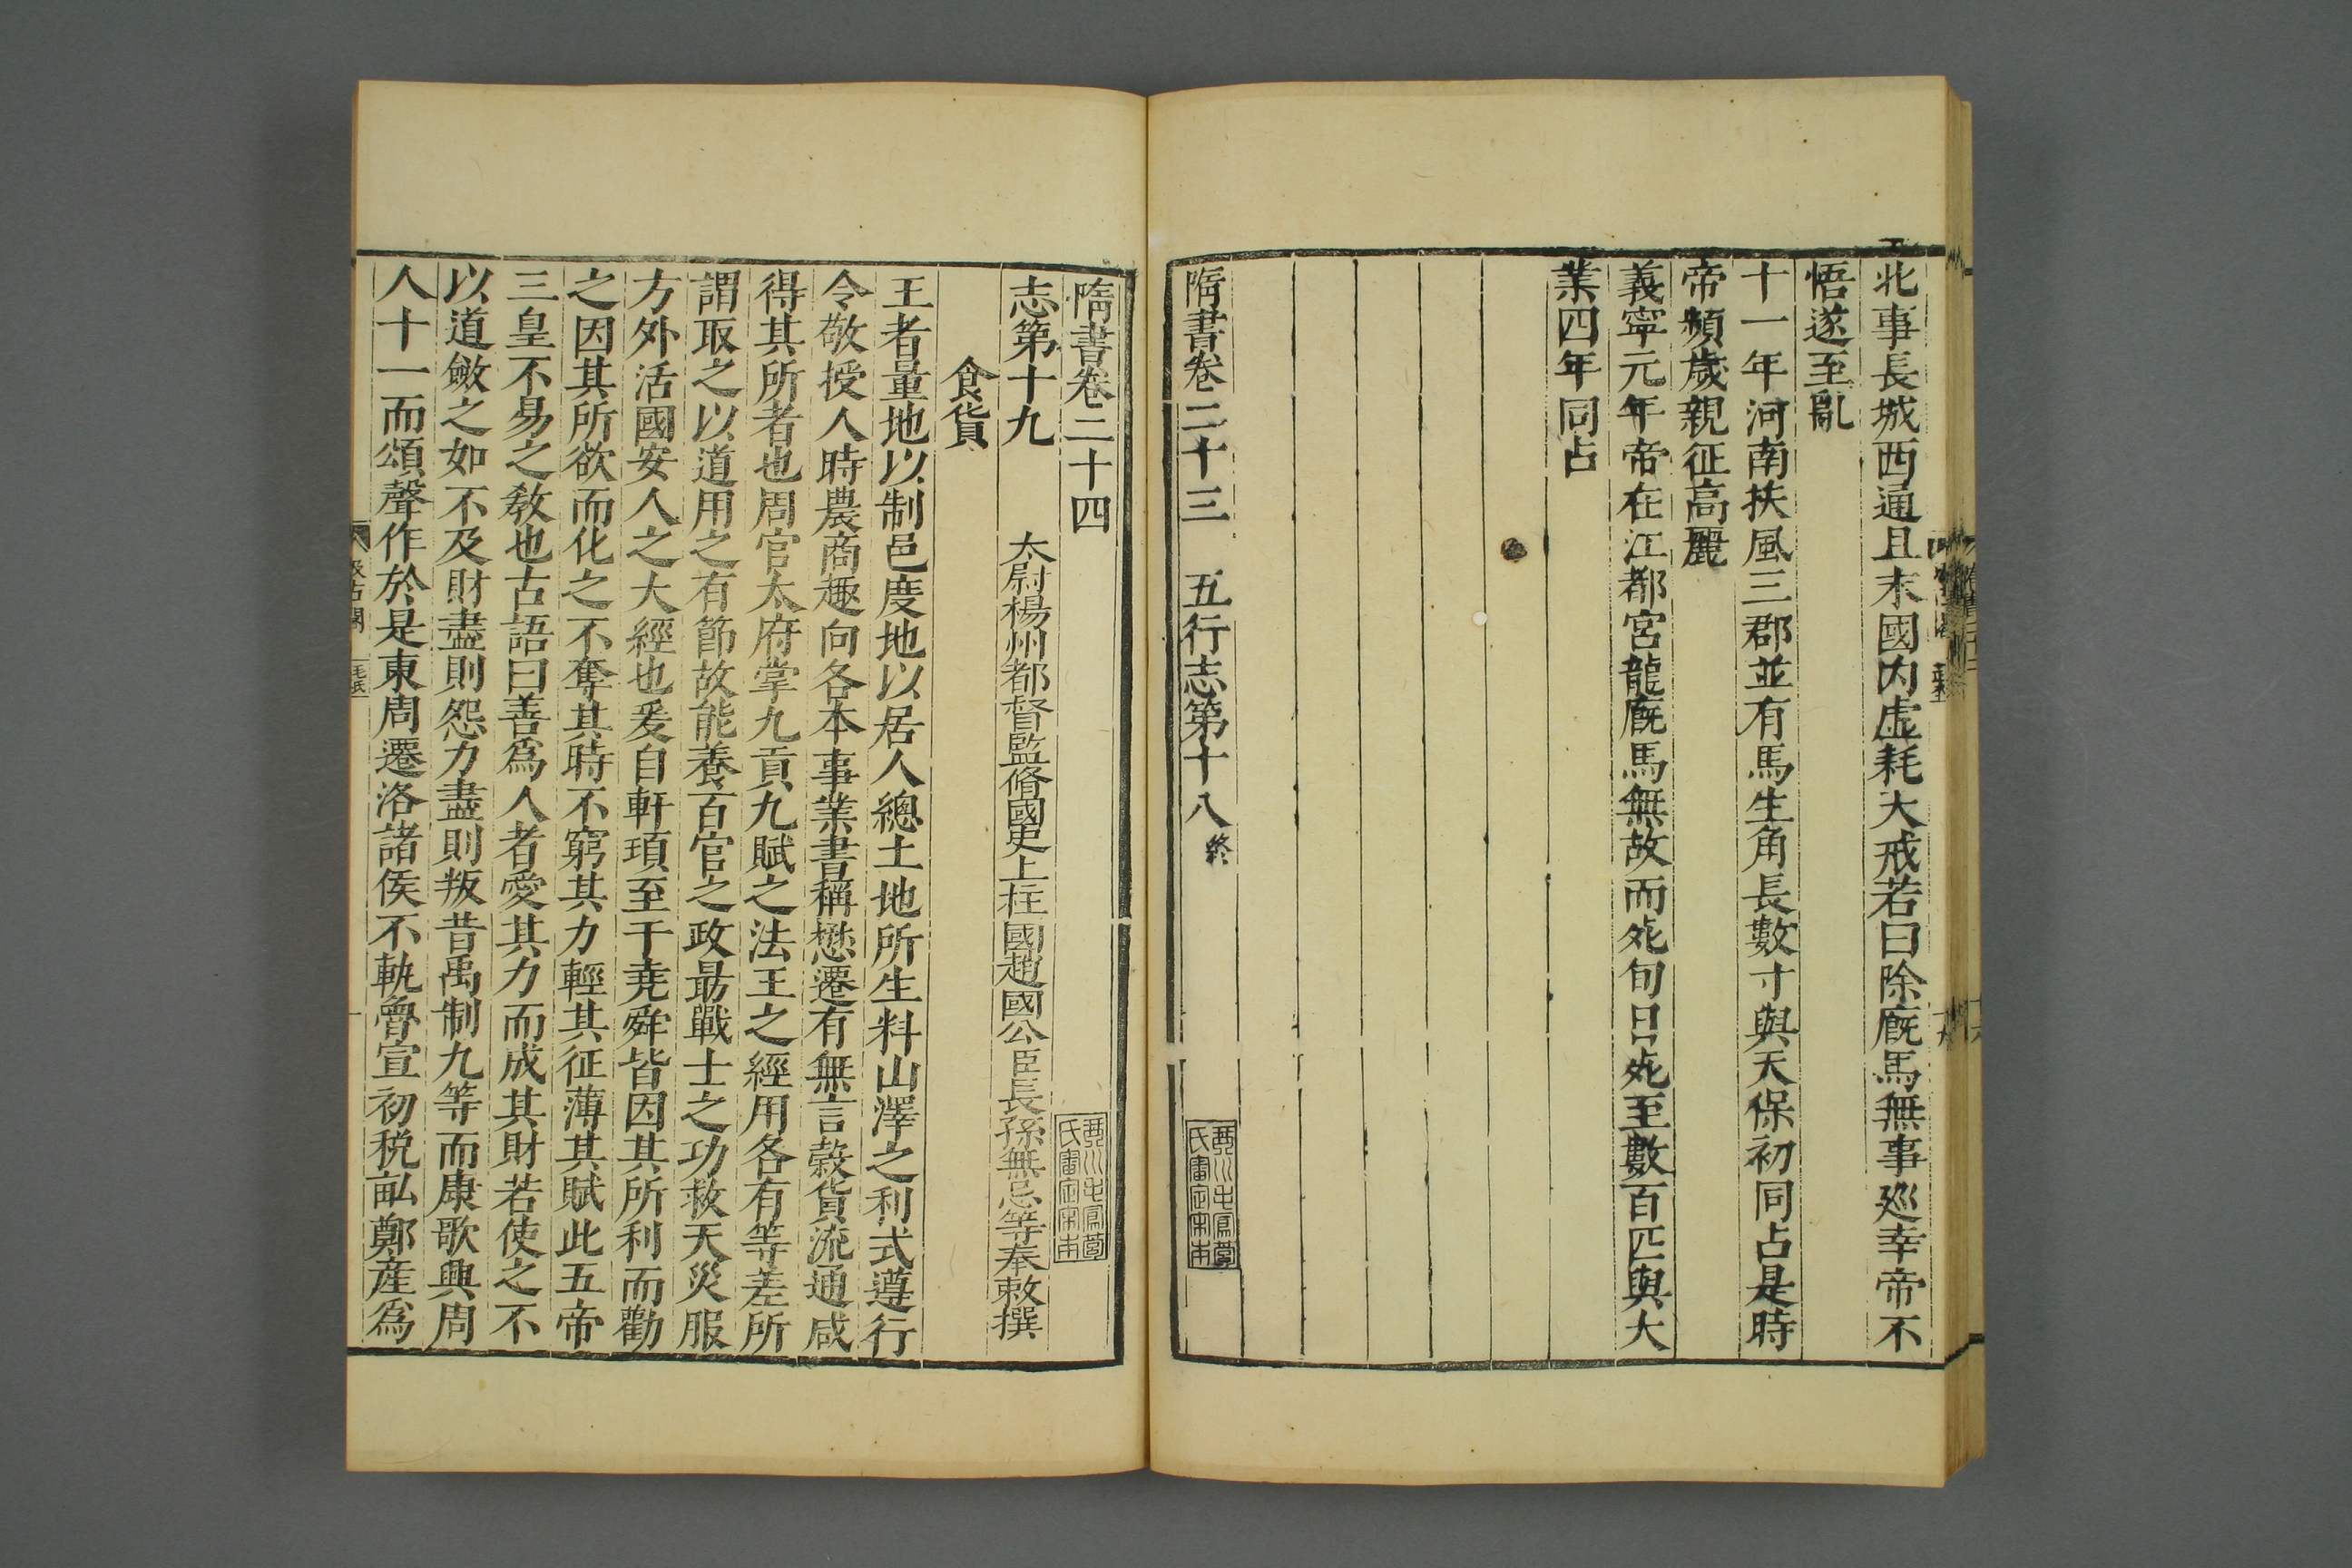 北事長城西通且末國内虚耗大戒若曰除廐馬無事巡幸帝不
悟遂至亂
十一年河南扶風三郡並有馬生角長數寸與天保初同占是時
帝頻歲親征高麗
義寧元年帝在江都宮龍廐馬無故而死旬日死至數百匹與大
業四年同占
隋書卷二十三 五行志第十八 終
隋書卷二十四
志第十九 太尉楊州都督監脩國史上柱國趙國公臣長孫無忌等奉敕撰
食貨
王者量地以制邑度地以居人總土地所生料山澤之利式遵行
令敬授人時農商趣向各本事業書稱懋遷有無言穀貨流通咸
得其所者也周官太府掌九貢九賦之法王之經用各有等差所
謂取之以道用之有節故能養百官之政最戰士之功救天災服
方外活國安人之大經也爰自軒頊至于堯舜皆因其所利而勸
之因其所欲而化之不奪其時不窮其力輕其征薄其賦此五帝
三皇不易之敎也古語曰善爲人者愛其力而成其財若使之不
以道斂之如不及財盡則怨力盡則叛昔禹制九等而康歌興周
人十一而頌聲作於是東周遷洛諸侯不軌魯宣初税畝鄭産爲